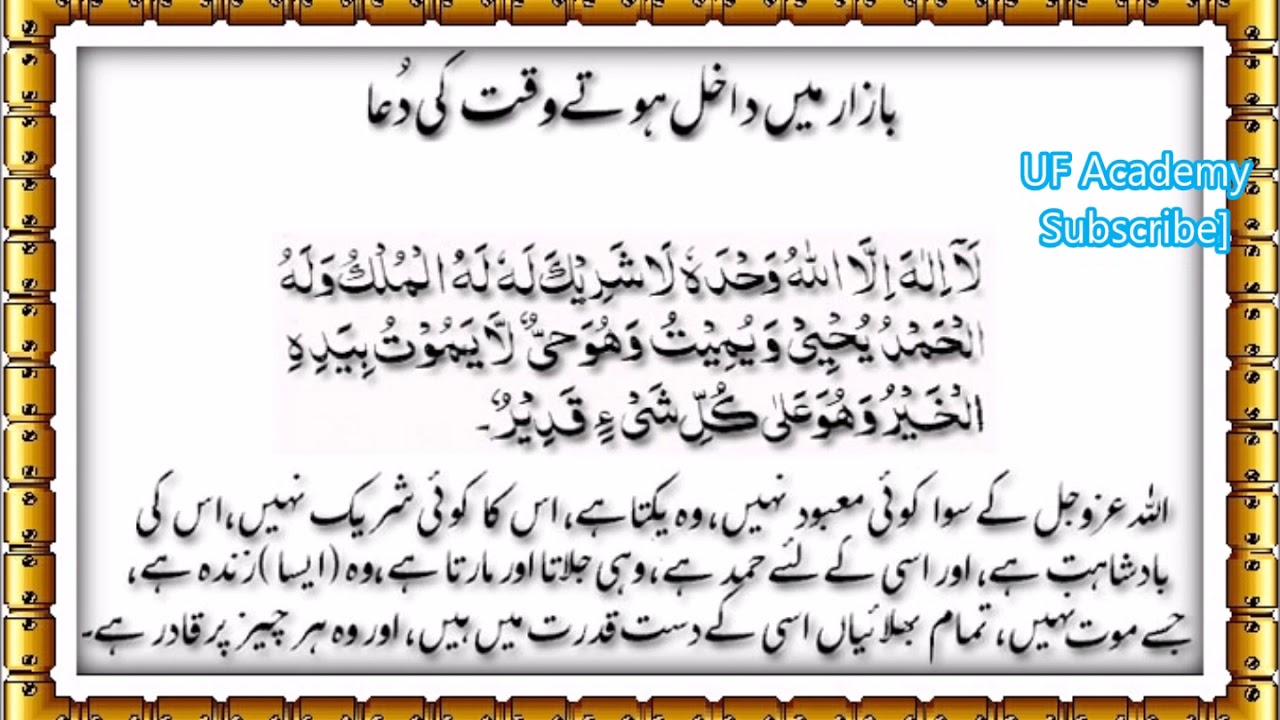 بازار میں داخل ہوتے وقت کی دُعا
UF Academy
Subscribe]
لَآ اِلٰهَ اِلَّا اللّٰهُ وَحْدَهٗ لَا شَرِيْكَ لَهٗ لَهُ الْمُلْكُ وَلَهُ
الْحَمْدُ يُحْيِيْ وَيُمِيْتُ وَهُوَ حَيٌّ لَّا يَمُوْتُ بِيَدِهِ
الْخَيْرُ وَهُوَ عَلٰى كُلِّ شَيْءٍ قَدِيْرٌ۔
اللہ عزوجل کے سوا کوئی معبود نہیں، وہ یکتا ہے، اس کا کوئی شریک نہیں، اس کی
بادشاہت ہے، اور اسی کے لئے حمد ہے، وہی جلاتا اور مارتا ہے، وہ (ایسا) زندہ ہے،
جسے موت نہیں، تمام بھلائیاں اسی کے دست قدرت میں ہیں، اور وہ ہر چیز پر قادر ہے۔